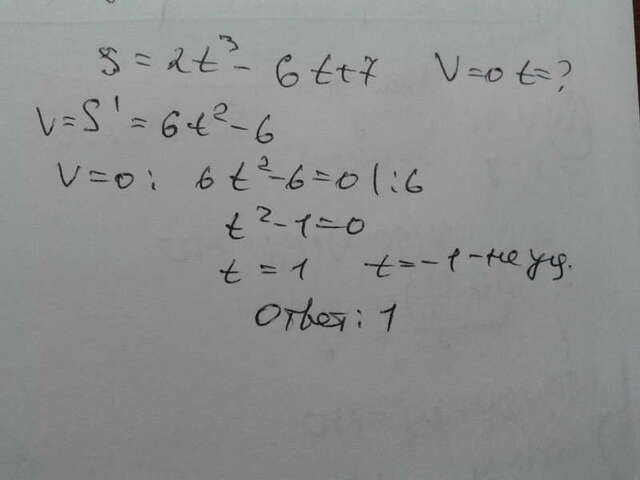 S = 2t³ - 6t+7 V=0 t=?
V=S' = 6t²-6
V=0: 6t²-6=0 |:6
t²-1=0
t = 1 t=-1 - не уд.
Ответ: 1